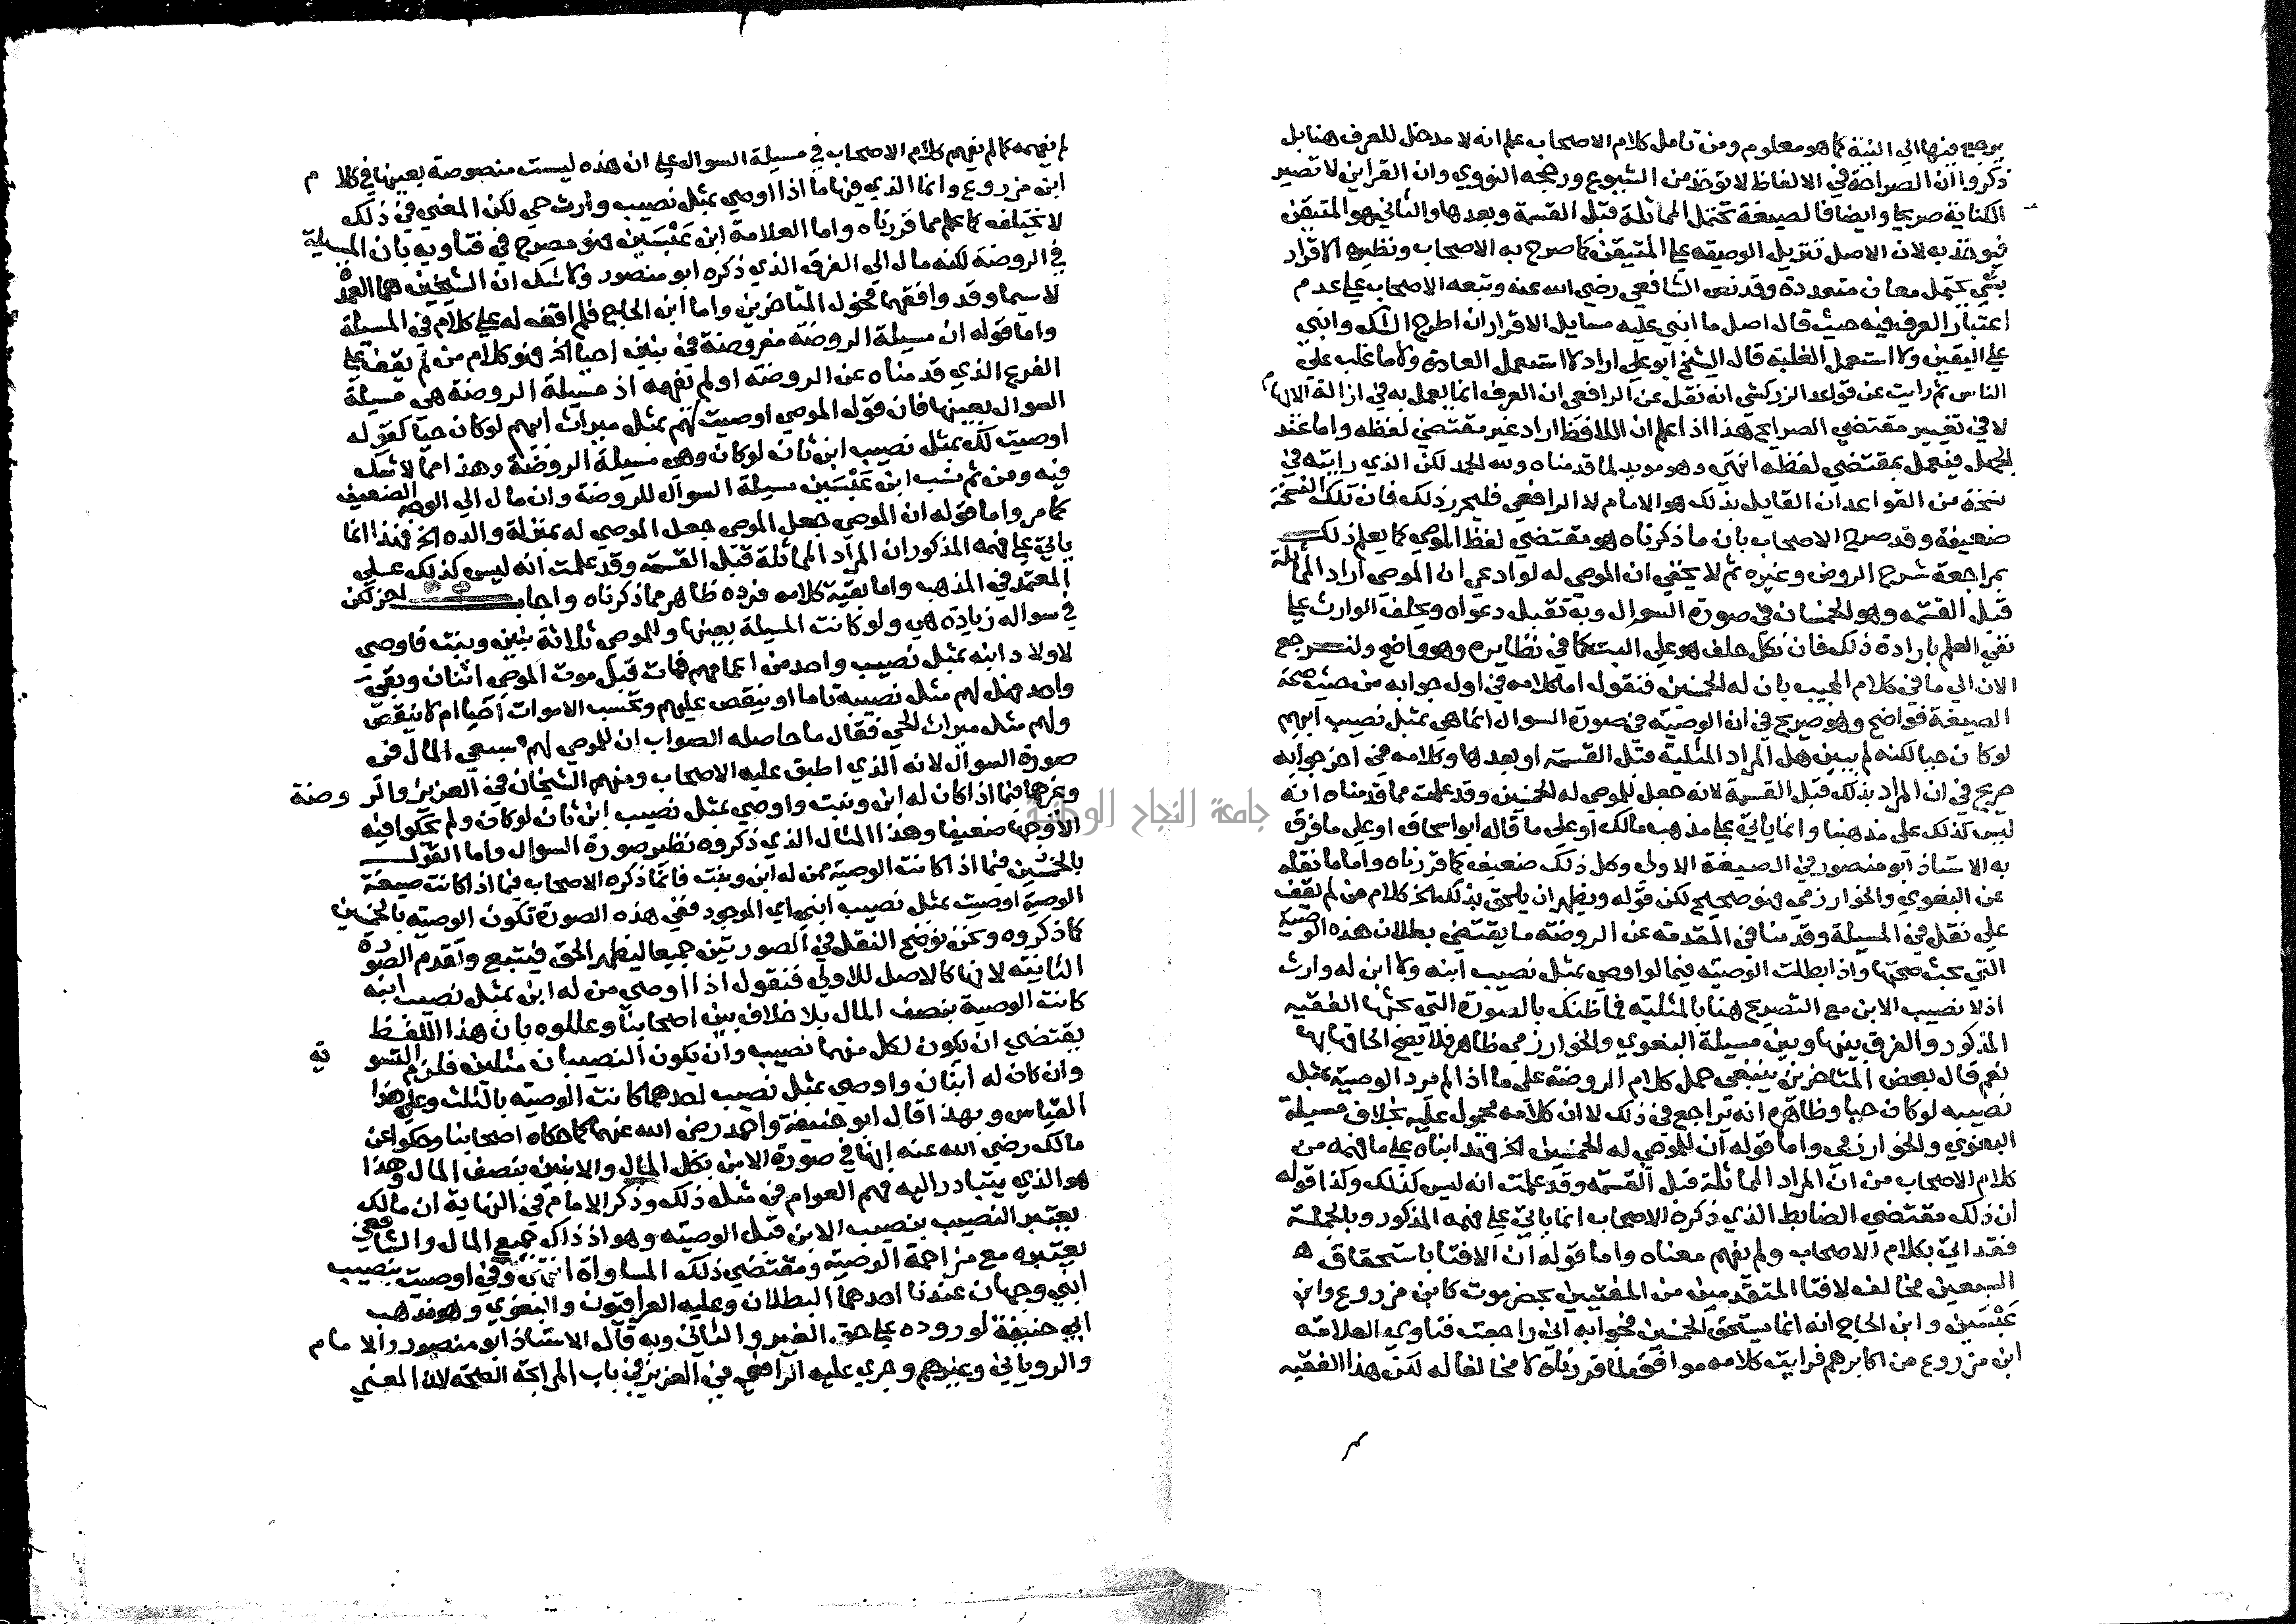 يرجع فيها الى النية كما هو معلوم ومن تامل كلام الاصحاب علم انه لا مدخل للعرف هنا بل
ذكروا ان الصراحة في الالفاظ لا توخذ من الشيوع ورجحه النووي وان القراين لا تصير
الكناية صريحا وايضا فالصيغة تحتمل المماثلة قبل القسمة وبعدها والثاني هو المتيقن
فيوخذ به لان الاصل تنزيل الوصية على المتيقن كما صرح به الاصحاب ونظيره الاقرار
بشي يحتمل معان متعددة وقد نص الشافعي رضي الله عنه وتبعه الاصحاب على عدم
اعتبار العرف فيه حيث قال اصل ما ابني عليه مسايل الاقرار ان اطرح الشك وابني
على اليقين ولا استعمل الغلبة قال الشيخ ابو علي اراد لا استعمل العادة ولا ما غلب على
الناس ثم رايت عن قواعد الزركشي انه نقل عن الرافعي ان العرف انما يعمل به في ازالة الابهام
لا في تغيير مقتضى الصرايح هذا اذا علم ان اللافظ اراد غير مقتضى لفظه واما عند
الجهل فيعمل بمقتضى لفظه انتهى وهو مويد لما قدمناه ولله الحد لكن الذي رايته في
نسخة من القواعد ان القايل بذلك هو الامام لا الرافعي فليحرر ذلك فان تلك النسخة
ضعيفة وقد صرح الاصحاب بان ما ذكرناه هو مقتضى لفظ الموصي كما يعلم ذلك
بمراجعة شرح الروض وغيره ثم لا يخفى ان الموصى له لو ادعى ان الموصي اراد المماثلة
قبل القسمة وهو الخمسان في صورة السوال وبه تقبل دعواه ويحلف الوارث على
نفي العلم بارادة ذلك فان نكل حلف هو على البت كما في نظايره وهو واضح ولنرجع
الان الى ما في كلام المجيب بان له الخمسين فنقول اما كلامه في اول جوابه من حيث صحة
الصيغة فواضح وهو صريح في ان الوصية في صورة السوال انما هي بمثل نصيب ابيهم
لو كان حيا لكنه لم يبين هل المراد المثلية قبل القسمة او بعدها وكلامه في اخر جوابه
صريح في ان المراد بذلك قبل القسمة لانه جعل للموصى له الخمسين وقد علمت مما قدمناه انه
ليس كذلك على مذهبنا وانما ياتي على مذهب مالك او على ما قاله ابو اسحاق او على ما فرق
به الاستاذ ابو منصور في الصيغة الاولى وكل ذلك ضعيف كما قررناه واما ما نقله
عن البغوي والخوارزمي فهو صحيح لكن قوله ويظهر ان يلحق بذلك الخ كلام من لم يقف
على نقل في المسيلة وقدمنا في المقدمة عن الروضة ما يقتضي بطلان هذه الوصية
التي بحث صحتها واذا بطلت الوصية فيما لو اوصى بمثل نصيب ابنه ولا ابن له وارث
اذ لا نصيب الابن مع التصريح هنا بالمثلية فما ظنك بالصورة التي بحثها الفقيه
المذكور والفرق بينها وبين مسيلة البغوي والخوارزمي ظاهر فلا يصح الحاقها بها
نعم قال بعض المتاخرين ينبغي حمل كلام الروضة على ما اذا لم يرد الوصية بمثل
نصيبه لو كان حيا وظاهره انه يراجع في ذلك لا ان كلامه محمول عليه بخلاف مسيلة
البغوي والخوارزمي واما قوله ان للموصى له الخمسين الخ فقد ابناه على ما فهمه من
كلام الاصحاب من ان المراد المماثلة قبل القسمة وقد علمت انه ليس كذلك وكذا قوله
ان ذلك مقتضى الضابط الذي ذكره الاصحاب انما ياتي على فهمه المذكور وبالجملة
فقد اتى بكلام الاصحاب ولم يفهم معناه واما قوله ان الافتا باستحقاق
السبعين مخالف لافتا المتقدمين من المفتيين بحضرموت كابن مزروع وابن
عَبْسَين وابن الحاج انه انما يستحق الخمسين فجوابه اني راجعت فتاوي العلامة
ابن مزروع من اكابرهم فرايت كلامه موافق لما قررناه لا مخالفا له لكن هذا الفقيه
لم يفهمه كما لم يفهم كلام الاصحاب في مسيلة السوال على ان هذه ليست منصوصة بعينها في كلام
ابن مزروع وانما الذي فيها ما اذا اوصى بمثل نصيب وارث حي لكن المعنى في ذلك
لا يختلف كما علم مما قررناه واما العلامة ابن عَبْسَين فهو مصرح في فتاويه بان المسيلة
في الروضة لكنه مال الى الفرق الذي ذكره ابو منصور ولا شك ان الشيخين هما العمدة
لا سيما وقد وافقهما فحول المتاخرين واما ابن الحاج فلم اقف له على كلام في المسيلة
واما قوله ان مسيلة الروضة مفروضة في بنين احيا الخ فهو كلام من لم يقف على
الفرع الذي قدمناه عن الروضة او لم يفهمه اذ مسيلة الروضة هي مسيلة
السوال بعينها فان قوله الموصي اوصيت لهم بمثل ميراث ابيهم لو كان حيا كقوله
اوصيت لك بمثل نصيب ابن ثان لو كان وهي مسيلة الروضة وهذا مما لا شك
فيه ومن ثم نسب ابن عَبْسَين مسيلة السوال للروضة وان مال الى الوجه الضعيف
كما مر واما قوله ان الموصي جعل الموصي جعل الموصى له بمنزلة والده الخ فهذا انما
ياتي على فهمه المذكور ان المراد المماثلة قبل القسمة وقد علمت انه ليس كذلك على
المعتمد في المذهب واما بقية كلامه فرده ظاهر مما ذكرناه واجاب لكن
في سواله زيادة هي ولو كانت المسيلة بعينها وللموصي ثلاثة بنين وبنت فاوصى
لاولاد ابنه بمثل نصيب واحد من اعمامهم فمات قبل موت الموصي اثنان وبقي
واحد فهل لهم مثل نصيبه تاما او ينقص عليهم وتحسب الاموات احيا ام لا ينقص
ولهم مثل ميراث الحي فقال ما حاصله الصواب ان للموصى لهم سبعي المال في
صورة السوال لانه الذي اطبق عليه الاصحاب ومنهم الشيخان في العزيز والروضة
وغيرهما فيما اذا كان له ابن وبنت واوصى بمثل نصيب ابن ثان لو كان ولم يحكوا فيه
الا وجها ضعيفا وهذا المثال الذي ذكروه نظير صورة السوال واما القول
بالخمسين فيما اذا كانت الوصية ممن له ابن وبنت فانما ذكره الاصحاب فيما اذا كانت صيغة
الوصية اوصيت بمثل نصيب ابني اي الموجود ففي هذه الصورة تكون الوصية بالخمسين
كما ذكروه ونحن نوضح النقل في الصورتين جميعا ليظهر الحق فيتبع ونقدم الصورة
الثانية لانها كالاصل للاولى فنقول اذا اوصى من له ابن بمثل نصيب ابنه
كانت الوصية بنصف المال بلا خلاف بين اصحابنا وعللوه بان هذا اللفظ
يقتضي ان يكون لكل منهما نصيب وان يكون النصيبان مثلين فلزم التسوية
وان كان له ابنان واوصى بمثل نصيب احدهما كانت الوصية بالثلث وعلى هذا
القياس وبهذا قال ابو حنيفة واحمد رضي الله عنهما كما حكاه اصحابنا وحكوا عن
مالك رضي الله عنه انها في صورة الابن بكل المال والابنين بنصف المال وهذا
هو الذي يتبادر اليه فهم العوام في مثل ذلك وذكر الامام في النهاية ان مالك
يعتبر النصيب بنصيب الابن قبل الوصية وهو اذ ذاك جميع المال والشافعي
يعتبره مع مزاحمة الوصية ومقتضى ذلك المساواة انتهى وفي اوصيت بنصيب
ابني وجهان عندنا احدهما البطلان وعليه العراقيون والبغوي وهو مذهب
ابي حنيفة لوروده على حق الغير والثاني وبه قال الاستاذ ابو منصور والامام
والروياني وغيرهم وجرى عليه الرافعي في العزيز في باب المرابحة الصحة لان المعنى
جامعة النجاح الوطنية